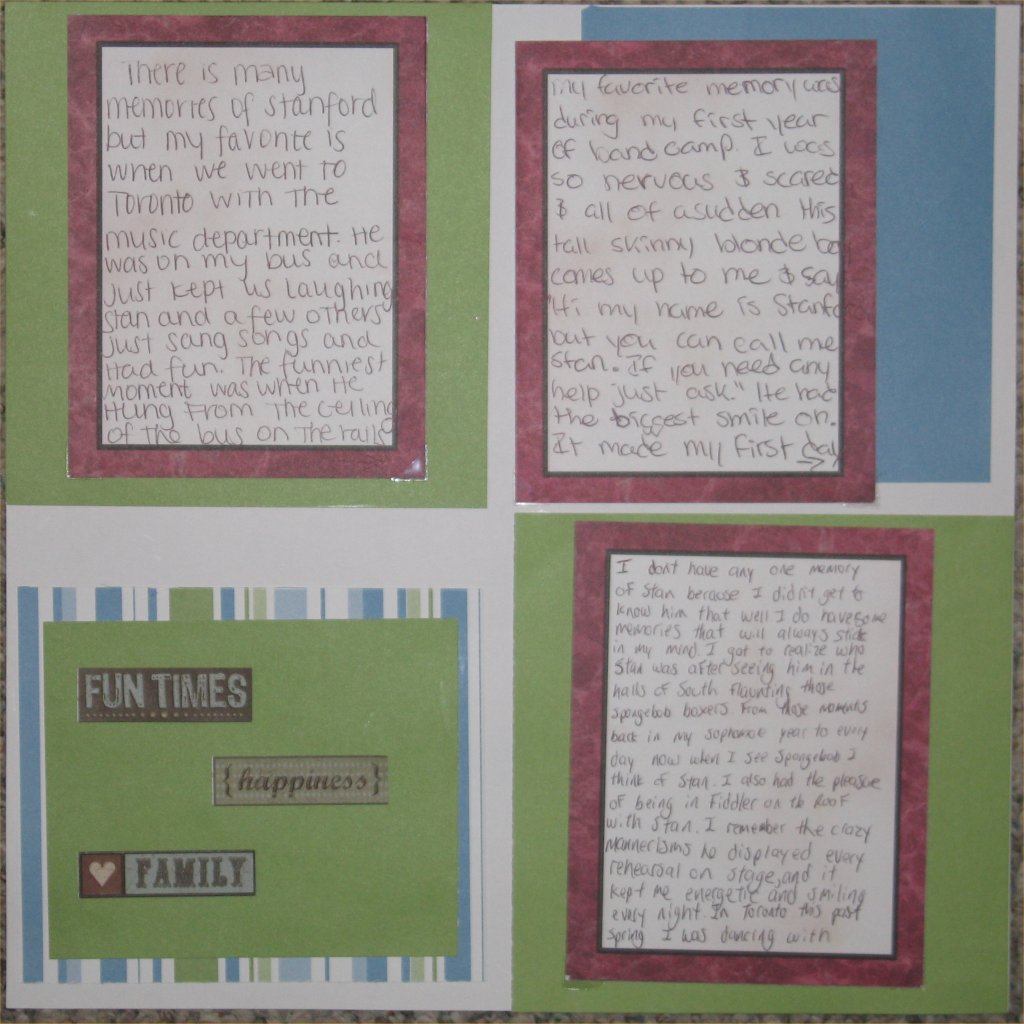 There is many
memories of Stanford
but my favorite is
when we went to
Toronto with the
music department. He
was on my bus and
just kept us laughing
Stan and a few others
just sang songs and
Had fun. The funniest
moment was when He
Hung From The Ceiling
of the bus on The rails
My favorite memory was
during my first year
of band camp. I was
so nervous & scared
& all of a sudden this
tall skinny blonde bo
comes up to me & say
"Hi my name is Stanfo
but you can call me
Stan. If you need any
help just ask." He had
the biggest smile on.
It made my first day
→
I dont have any one memory
of Stan because I didn't get to
know him that well I do have some
memories that will always stick
in my mind. I got to realize who
Stan was after seeing him in the
halls of South flaunting those
spongebob boxers. From those moments
back in my sophomore year to every
day now when I see Spongebob I
think of Stan. I also had the pleasure
of being in Fiddler on the Roof
with Stan. I remember the crazy
mannerisms he displayed every
rehearsal on stage, and it
kept me energetic and smiling
every night. In Toronto this past
spring I was dancing with
FUN TIMES
{happiness}
FAMILY